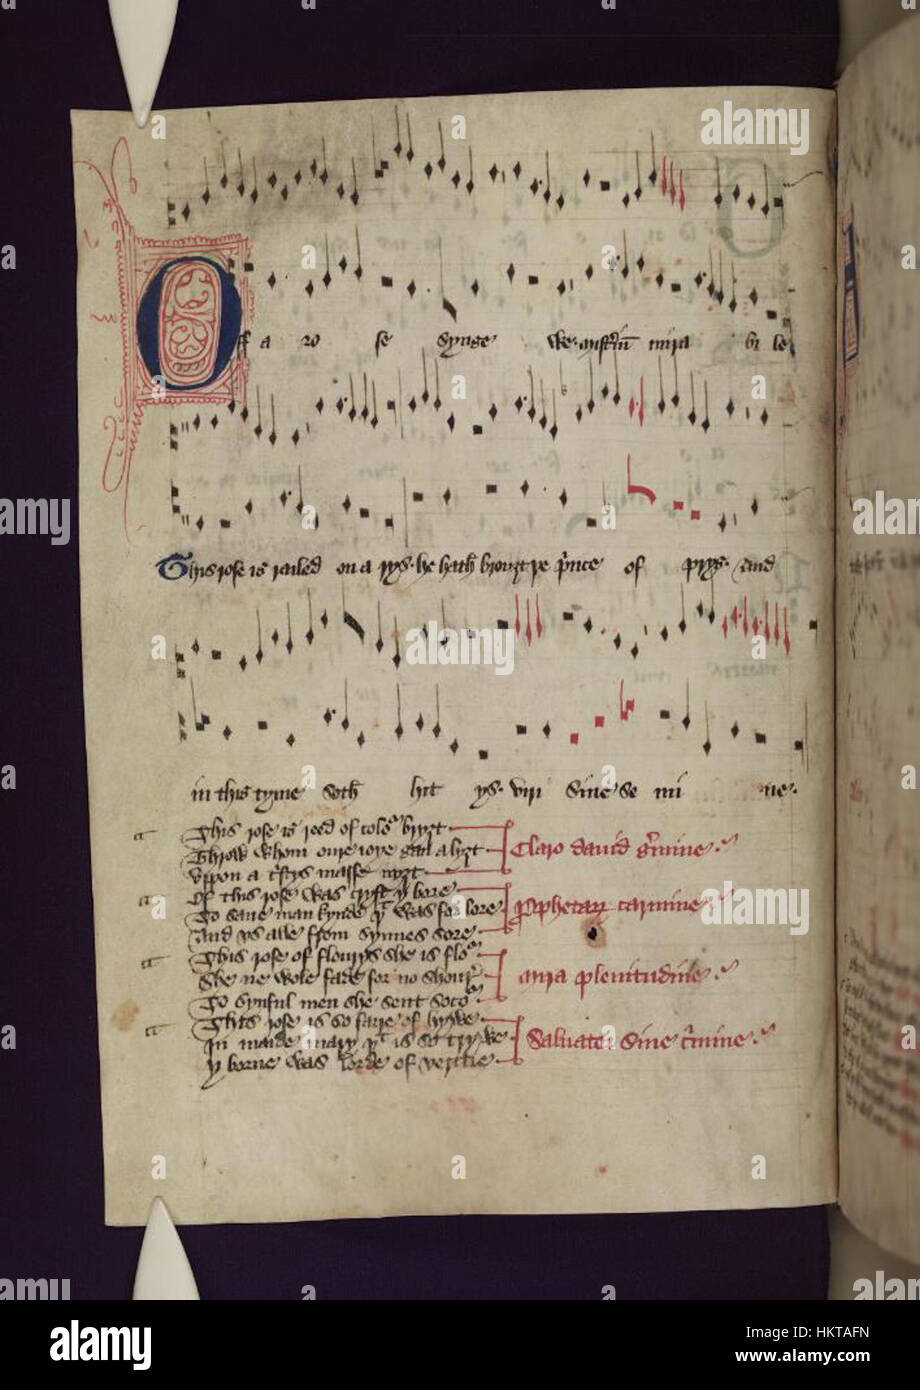 Off a ro se synge we. misteriū mira bi le
This rose is railed on a rys. he hath brouȝt þe prince of prys. And
in this tyme soth hit ys. viri sine se mi ne.
This rose is reed of color bryȝt
Throw whom oure ioye gan alyȝt
Vppon a cristys masse nyȝt
Claro dauid germine
Of this rose was cryst y bore
To saue mankynde þt was forlore
And vs alle ffrom synnes sore
Prophetarum carmine
This rose of flourys she is flour
She ne wole fade for no shour
To synful men she sent socour
Mira plenitudine
This rose is so faire of hywe
In maide mary þt is so trywe
y borne was lorde of vertue
Saluator sine crimine
alamy
Image ID: HKTAFN
www.alamy.com